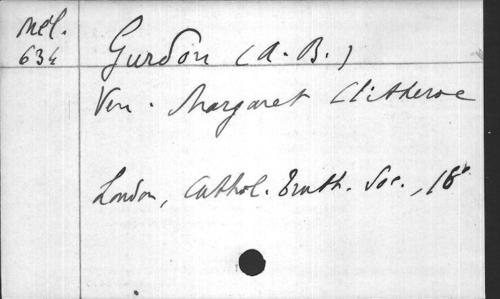 Mél.
634
Gurdon (A. B.)
Ven. Margaret Clitheroe
London, Cathol. Truth. Soc., 18°